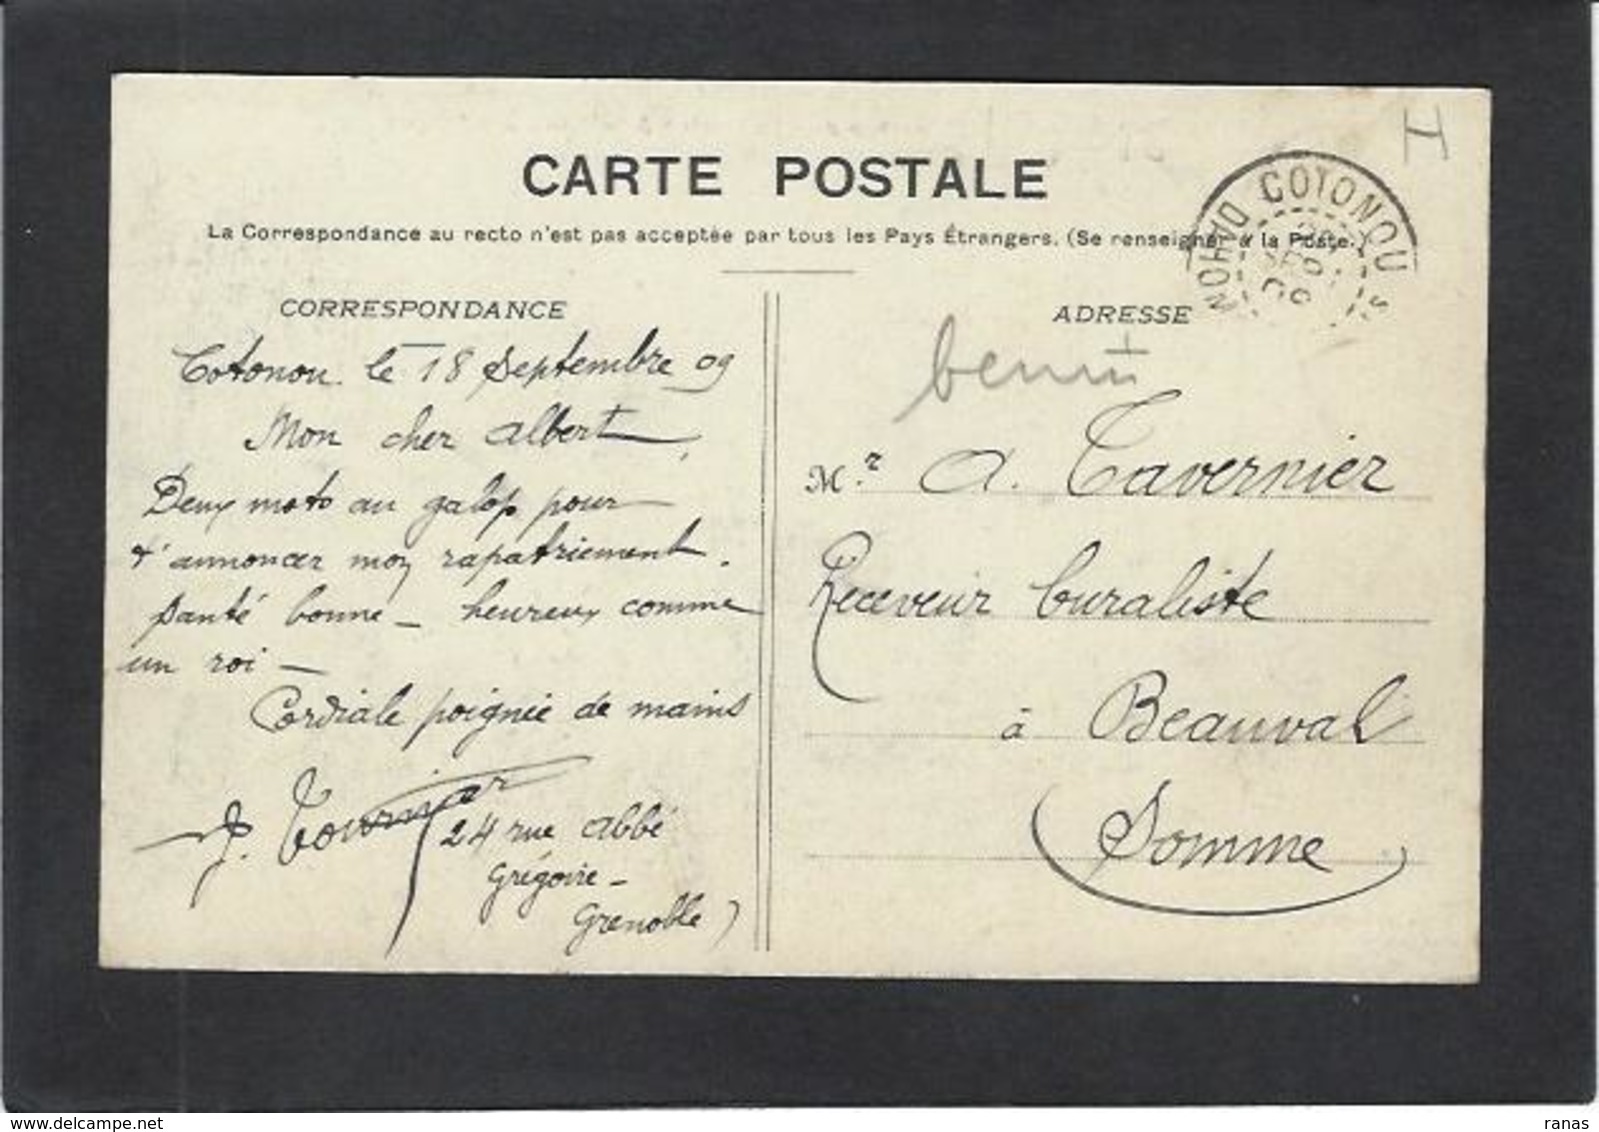 H
CARTE POSTALE
La Correspondance au recto n'est pas acceptée par tous les Pays Étrangers. (Se renseigner à la Poste.)
COTONOU
CORRESPONDANCE
Cotonou le 18 Septembre 09
Mon cher Albert,
Deux mots au galop pour
t'annoncer mon rapatriement.
Santé bonne – heureux comme
un roi –
Cordiale poignée de mains
J. Tournier
24 rue Abbé
Grégoire –
Grenoble)
ADRESSE
Mr. A. Tavernier
Receveur buraliste
à Beauval
(Somme)
delcampe.net
ranas